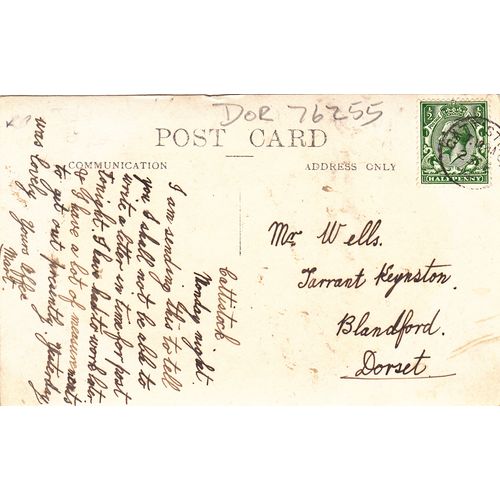 DOR 76255
POST CARD
COMMUNICATION
ADDRESS ONLY
HALFPENNY
Cattistock
Monday night.
I am sending this to tell
you I shall not be able to
write a letter in time for post
tonight. I have had to work late
& I have a lot of measurements
to get out presently. Yesterday
was lovely. Yours
Mr Wells.
Tarrant Keynston.
Blandford.
Dorset.